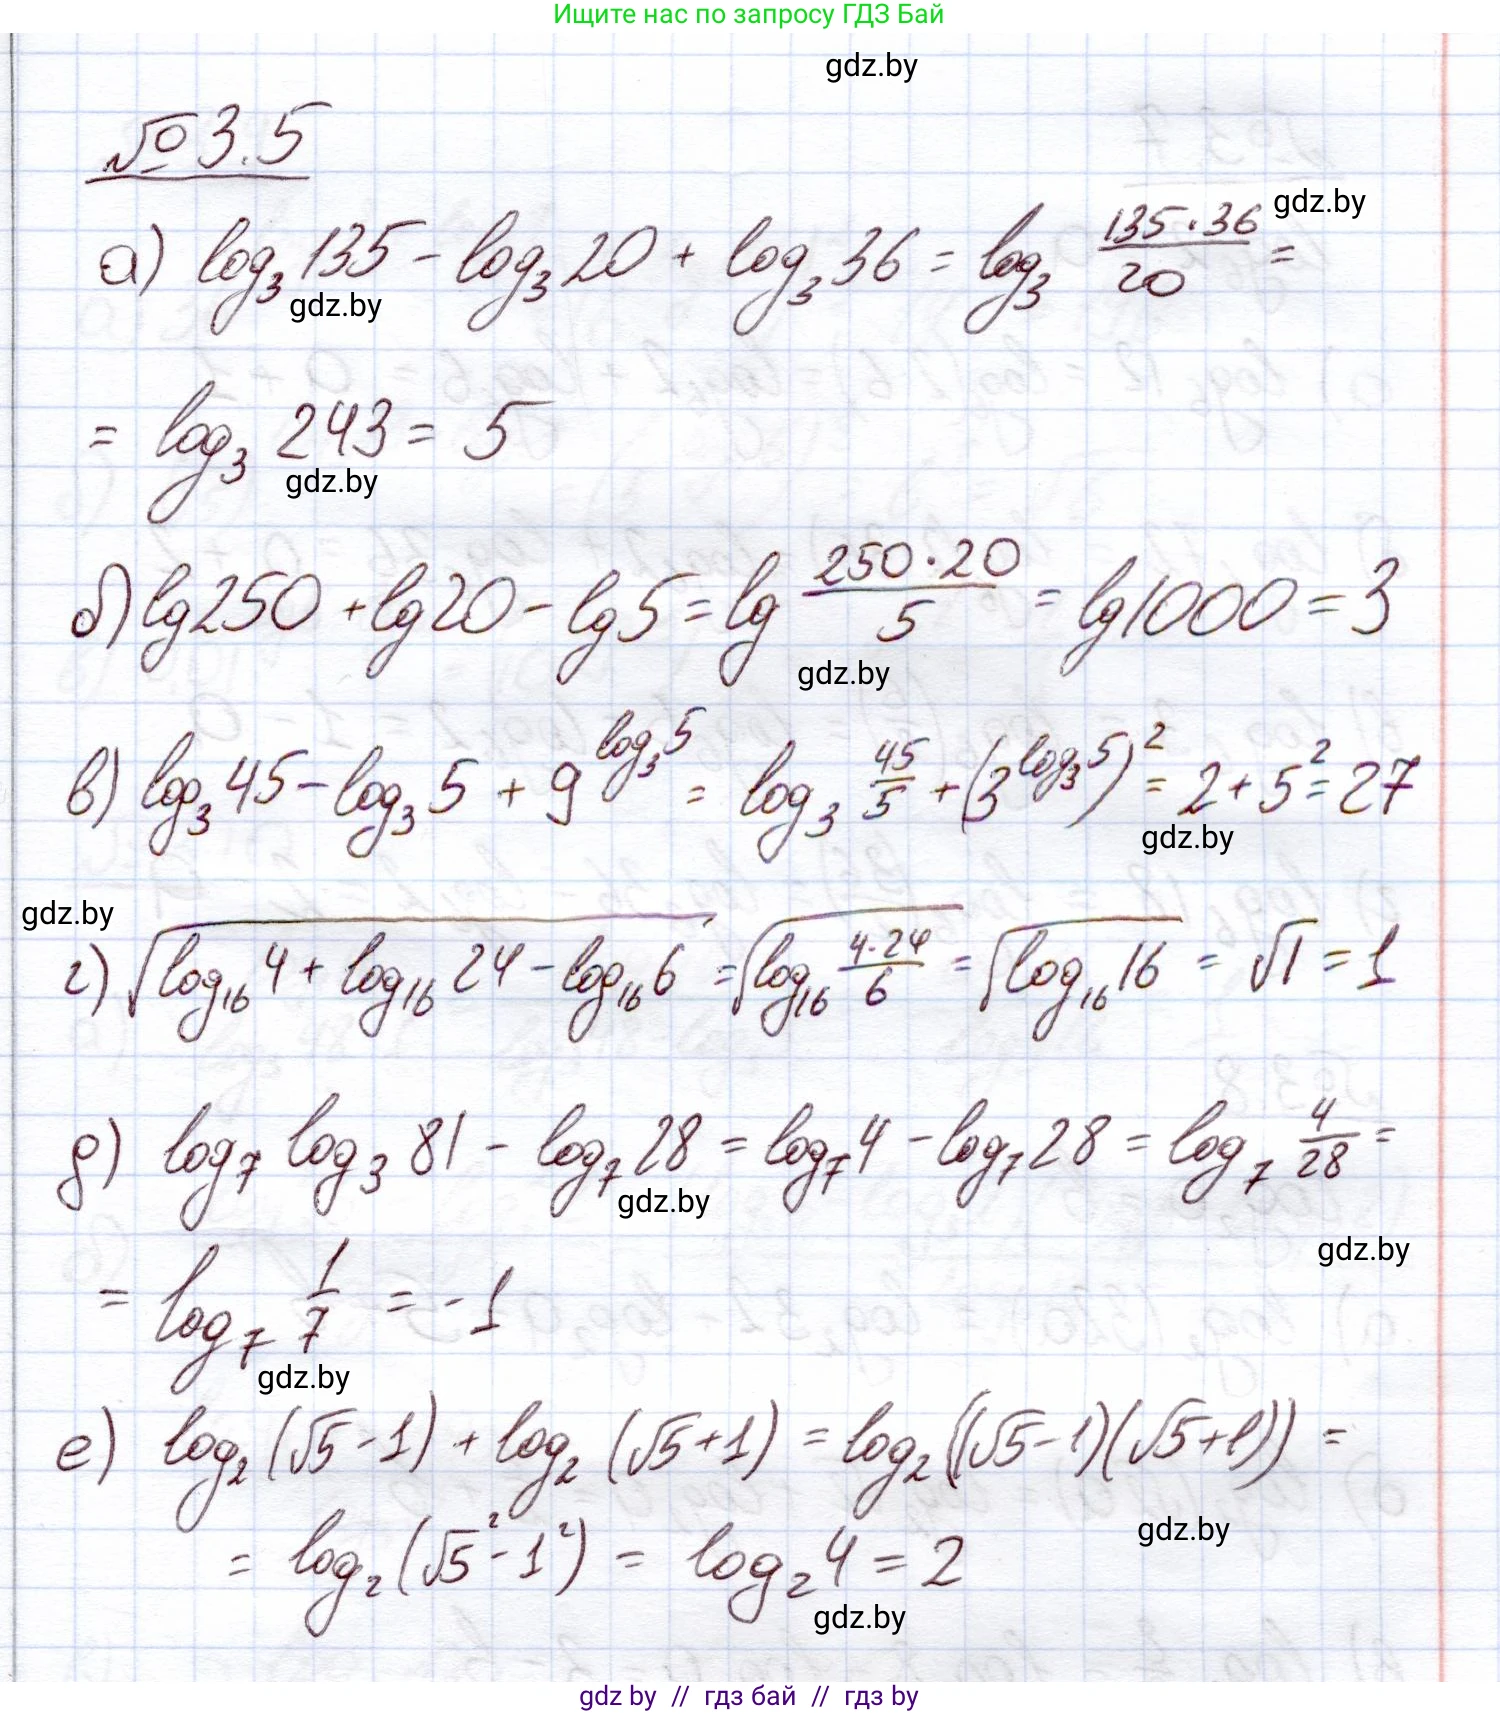 Ищите нас по запросу ГДЗ Бай
gdz.by
№ 3.5
gdz.by
а) log₃ 135 - log₃ 20 + log₃ 36 = log₃ (135·36)/20 =
gdz.by
= log₃ 243 = 5
gdz.by
б) lg 250 + lg 20 - lg 5 = lg (250·20)/5 = lg 1000 = 3
gdz.by
в) log₃ 45 - log₃ 5 + 9^(log₃ 5) = log₃ 45/5 + (3^(log₃ 5))² = 2 + 5² = 27
gdz.by
gdz.by
г) √(log₁₆ 4 + log₁₆ 24 - log₁₆ 6) = √(log₁₆ (4·24)/6) = √(log₁₆ 16) = √1 = 1
д) log₇ log₃ 81 - log₇ 28 = log₇ 4 - log₇ 28 = log₇ 4/28 =
gdz.by
gdz.by
= log₇ 1/7 = -1
gdz.by
е) log₂ (√5 - 1) + log₂ (√5 + 1) = log₂ ((√5 - 1)(√5 + 1)) =
gdz.by
= log₂ (√5² - 1²) = log₂ 4 = 2
gdz.by
gdz by // гдз бай // гдз by